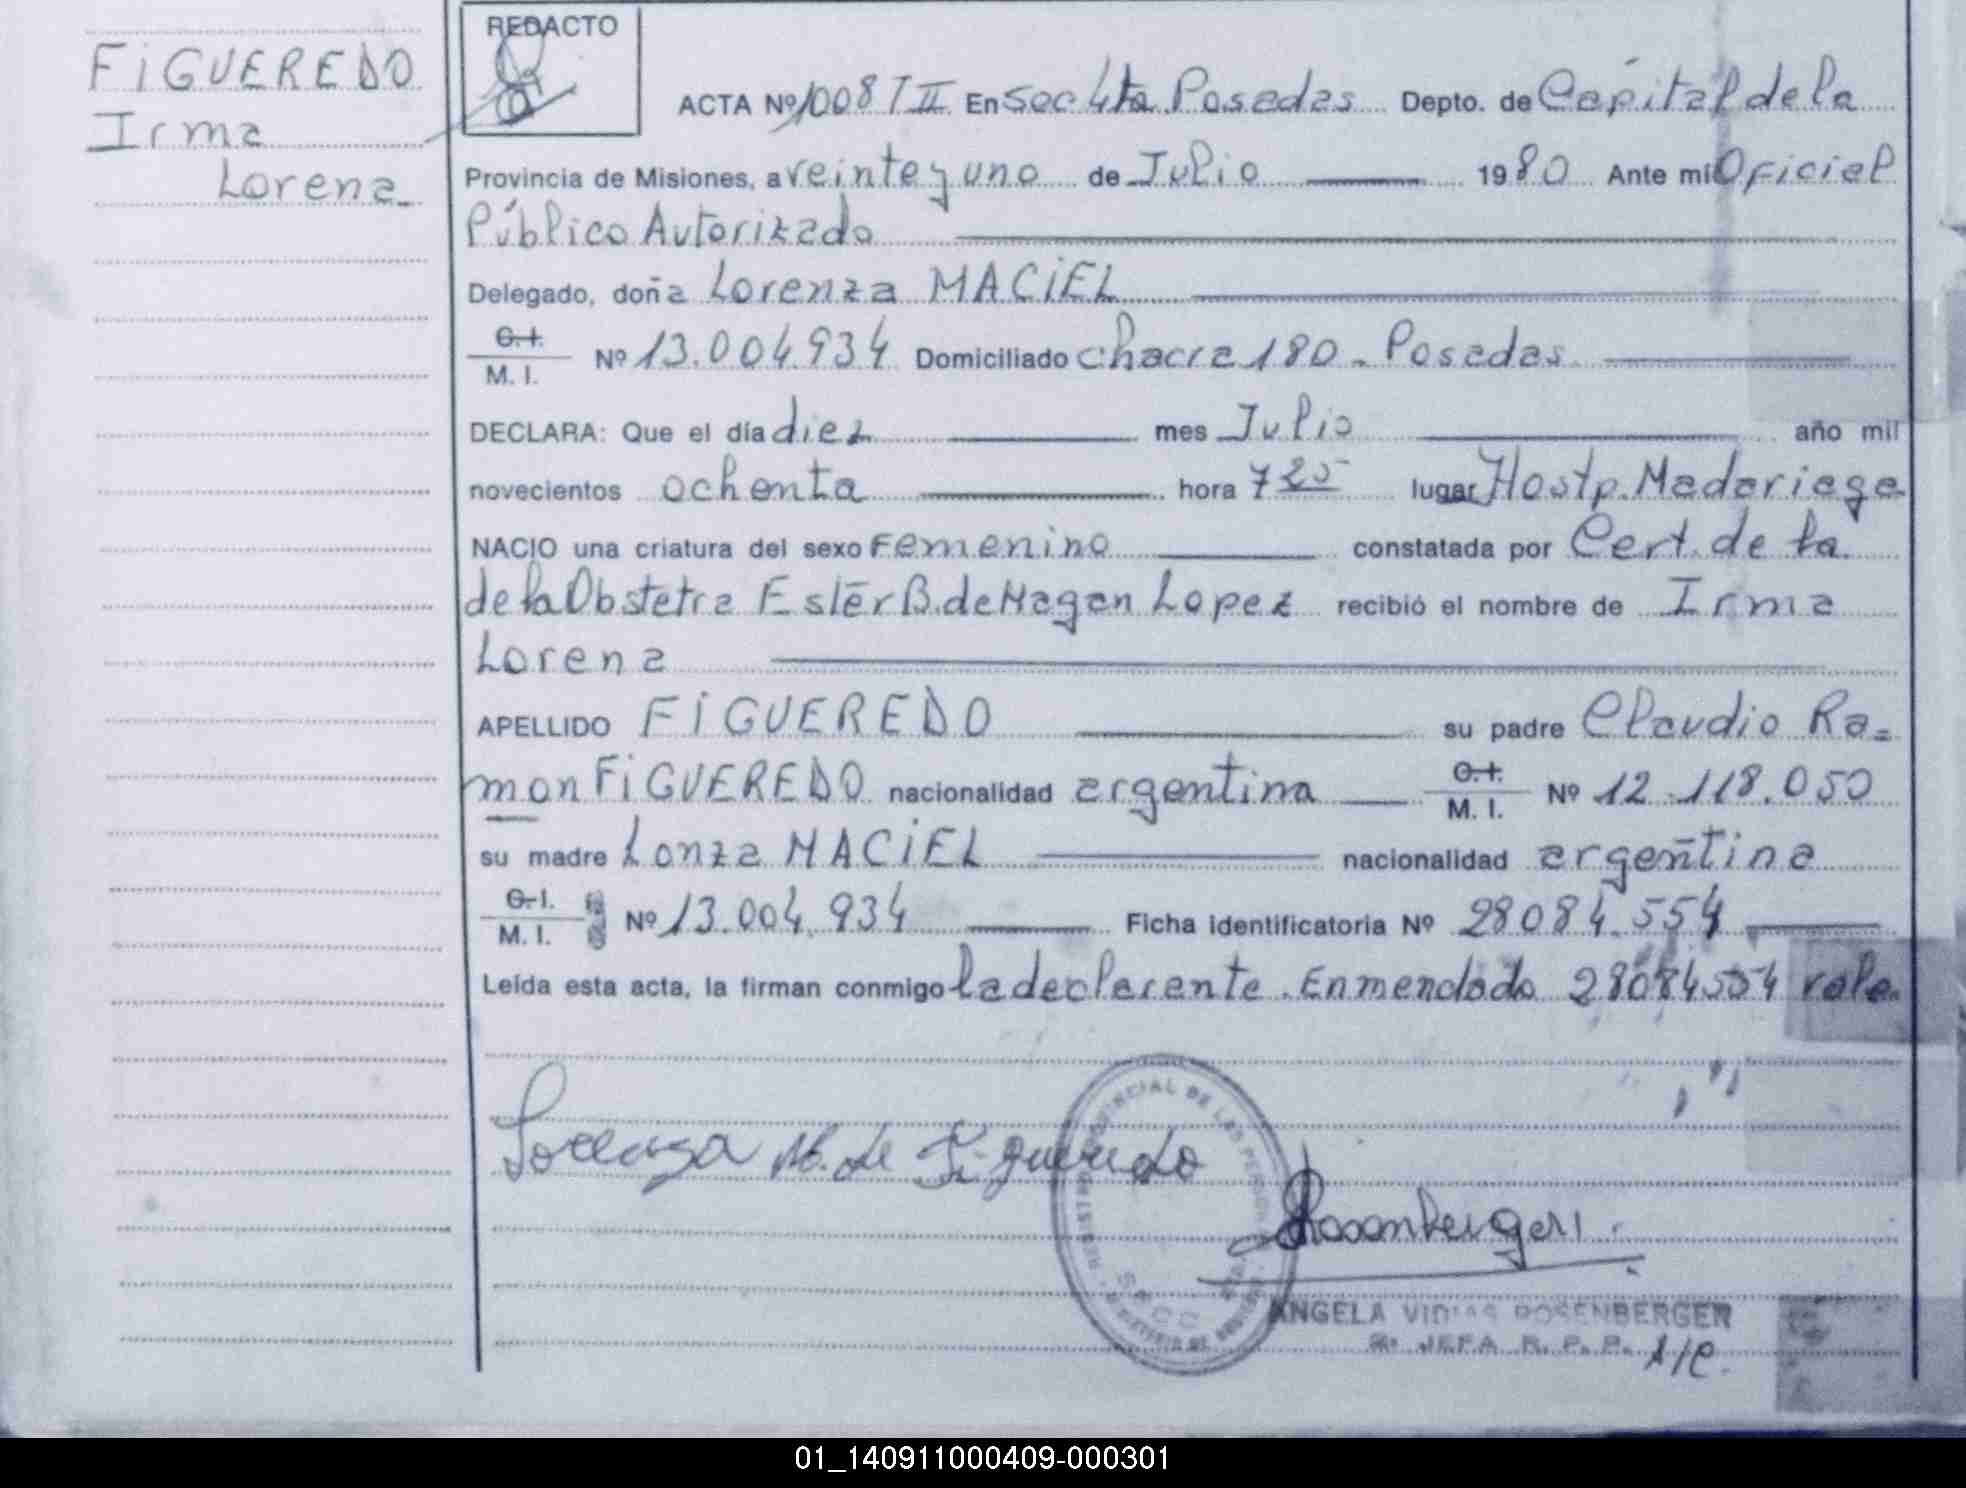 FiGUEREDO
Irma
Lorena
REDACTO
ACTA Nº 1008 T II En Secc 4ta Posadas Depto. de Capital de la
Provincia de Misiones, a veinte y uno de Julio 1980 Ante mí Oficial
Público Autorizado
Delegado, doña Lorenza MACiEL
C.I. M. I. Nº 13.004.934 Domiciliado Chacra 180 - Posadas
DECLARA: Que el día diez mes Julio año mil
novecientos ochenta hora 7 25 lugar Hostp. Madariaga
NACIO una criatura del sexo Femenino constatada por Cert. de la
de la Obstetra Ester B. de Magan Lopez recibió el nombre de Irma
Lorena
APELLIDO FiGUEREDO su padre Claudio Ra=
mon FiGUEREDO nacionalidad argentina C.I. M. I. Nº 12.118.050
su madre Lonza MACiEL nacionalidad argentina
C.I. M. I. Nº 13.004.934 Ficha identificatoria Nº 28084.554
Leída esta acta, la firman conmigo la declarante. Enmendado 28084554 vale.
Lorenza M. de Figueredo
Rosenberger
ANGELA ROSENBERGER
JEFA R. P. P. A/C.
01_140911000409-000301